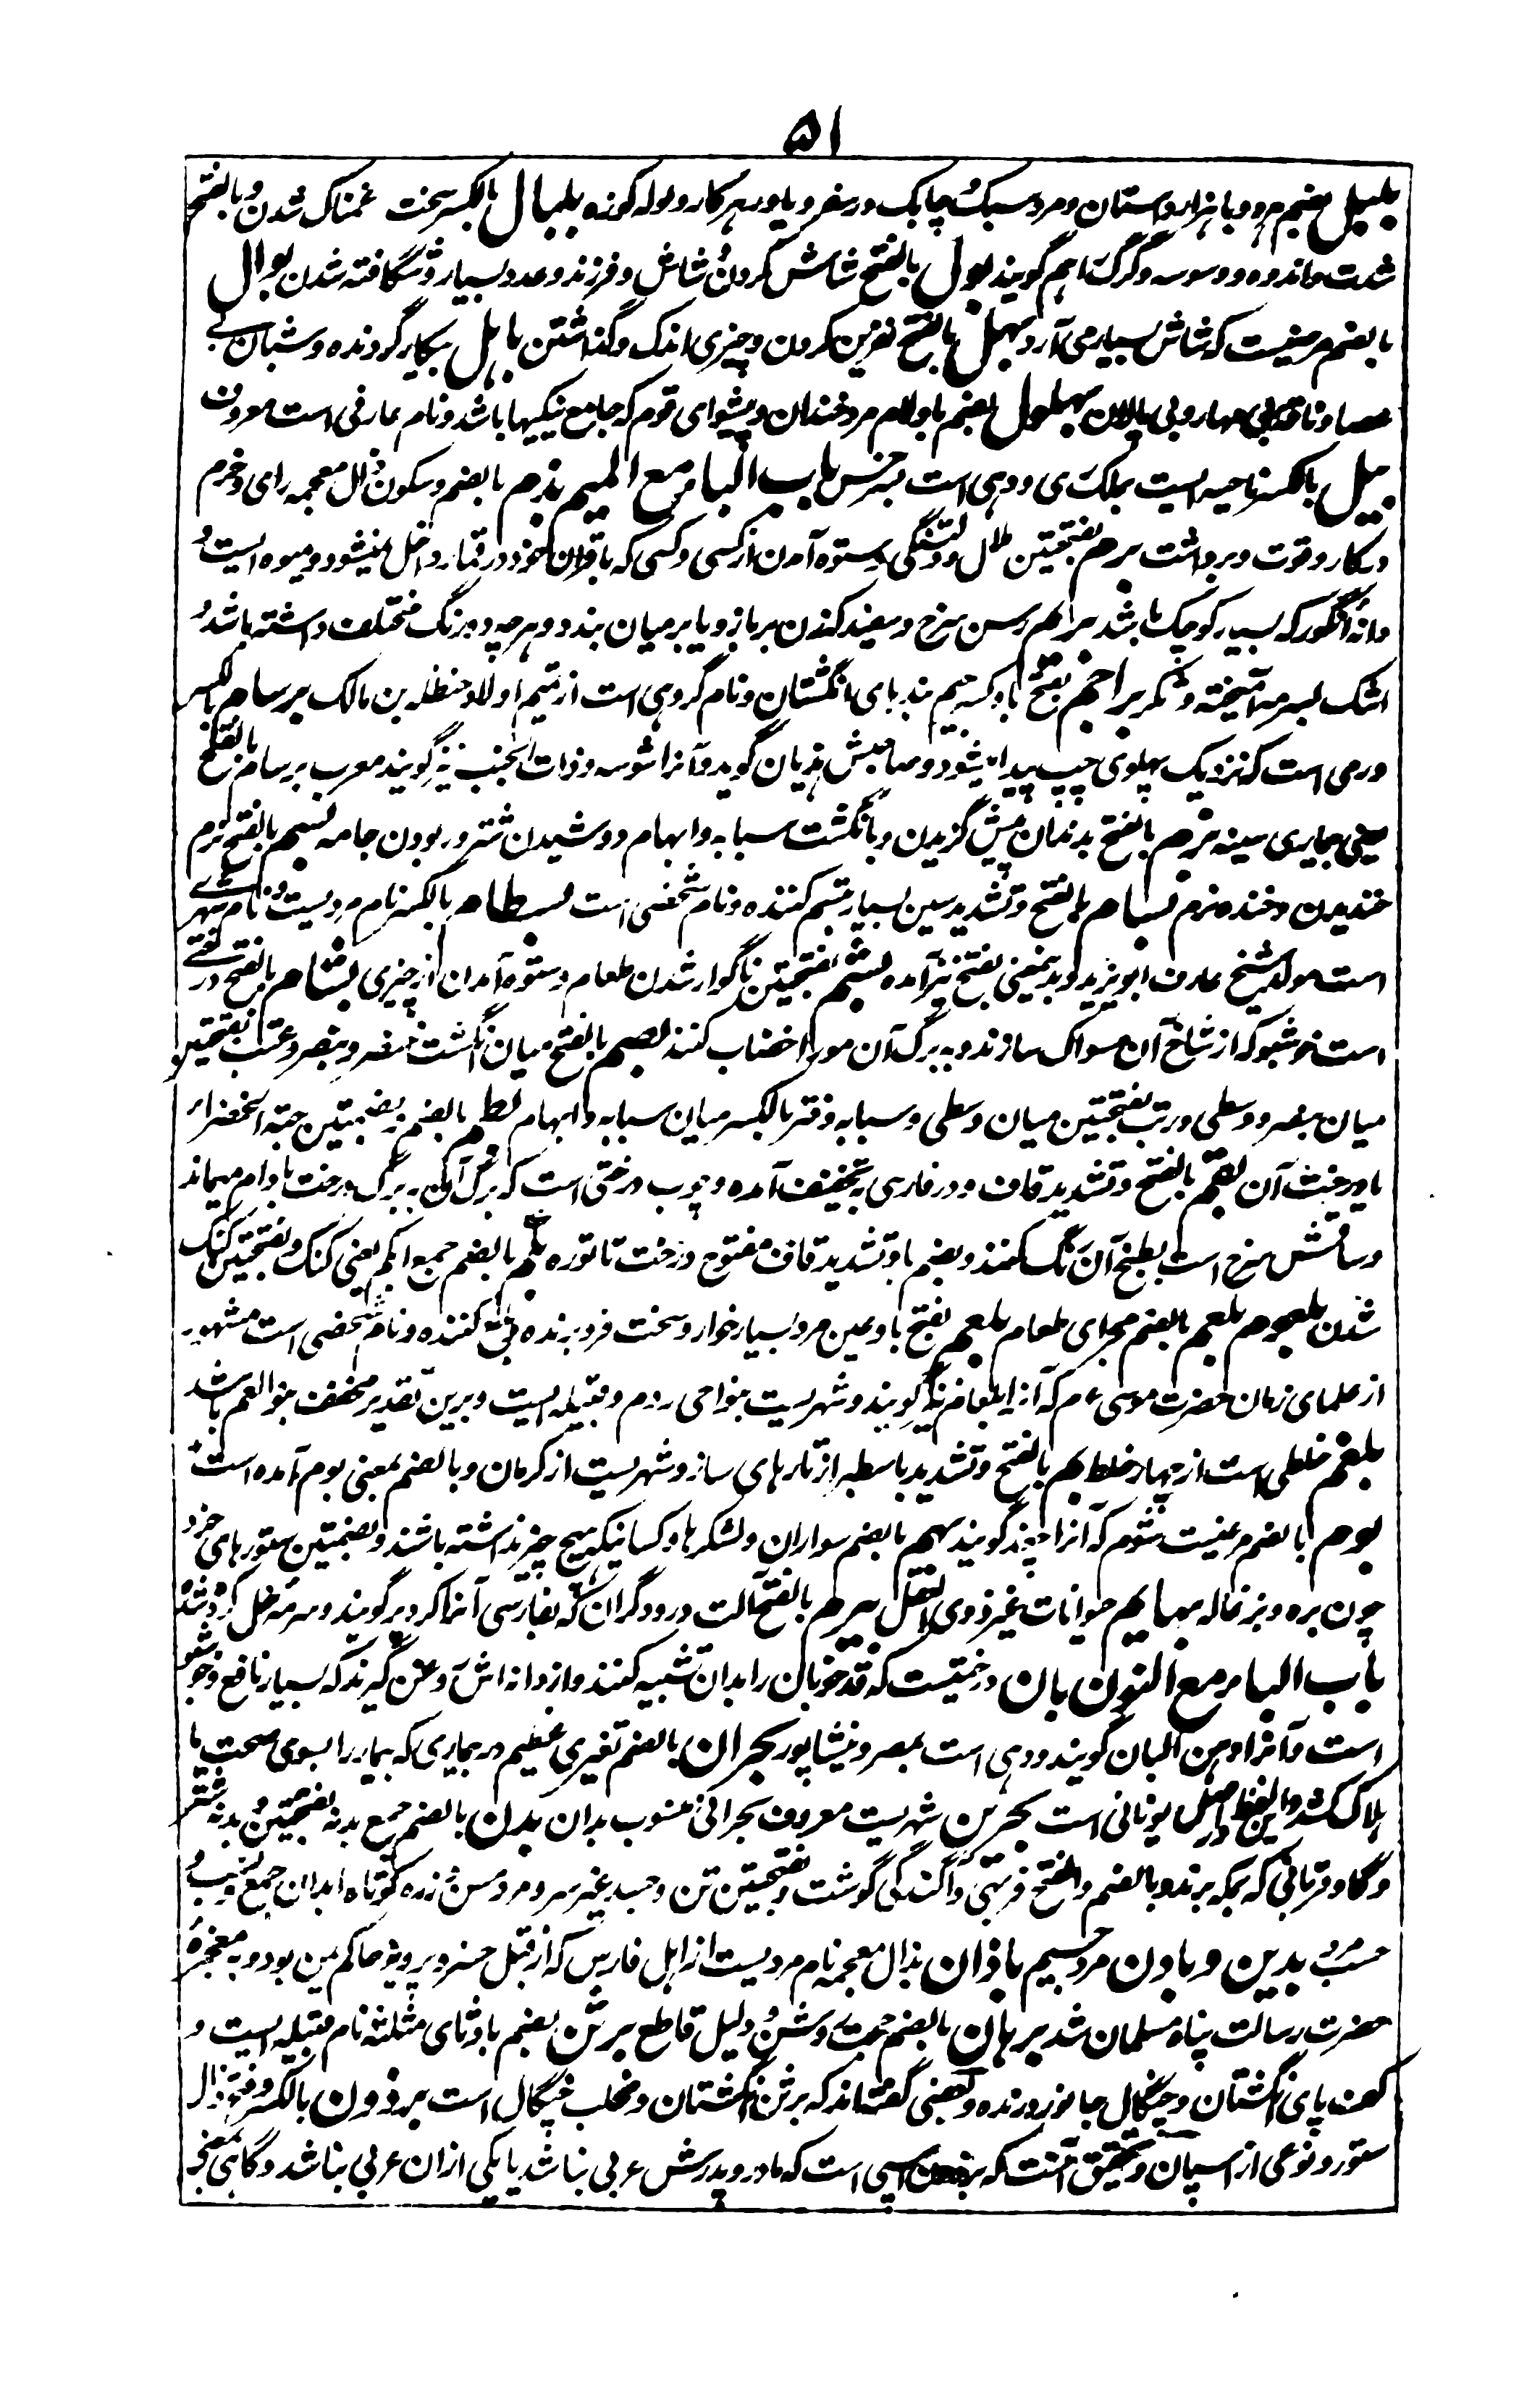 ۵۱
بلبل بضم هر دو با هزار داستان و مرد سبک و چابک در سفر و یاور هر کار و لوله کوزه بلبال بالکسر سخت غمناک شدن و بالفتح
شدت اندوه و وسوسه و گرگ را هم گویند بول بالفتح شاش کردن و شاش و فرزند و عدد بسیار و شگافته شدن بوال
بالضم مرضیست که شاش بسیار می آرد بهل بالفتح نفرین کردن و چیزی اندک و گذاشتن باهل بیکار گردنده و شبان بی
عصا و ناقه بی مهار و بی پالان بهلول بضم با و لام مرد خندان و پیشوای قوم که جامع نیکیها باشد و نام عارفی است معروف
بیل بالکسر ناحیه ایست بملک ری و دهی است بسرخس باب الباء مع المیم بذم بالضم و سکون ذال معجمه رای و حزم
و کار و قوت و برداشت برم بفتحتین ملال و دلتنگی و ستوه آمدن از کسی و کسی که با قران خود در قمار داخل نمیشود و میوه ایست و
دانه انگور که بسیار کوچک باشد بریم رسن سرخ و سفید که زن بر بازو یا بر میان بندد و هرچه دو رنگ مختلف داشته باشد و
اشک بسرمه آمیخته و لشکر براجم بفتح با و کسر جیم بندهای انگشتان و نام گروهی است از تمیم اولاد حنظله بن مالک برسام بالکسر
ورمی است که نزدیک پهلوی چپ پیدا میشود و صاحبش هذیان گوید و آنرا شوصه و ذات الجنب نیز گویند معرب برسام بالفتح
یعنی بیماری سینه بزم بالفتح بدندان پیش گزیدن و بانگشت سبابه و ابهام دوشیدن شتر و ربودن جامه بسم بالفتح نرم
خندیدن و خنده نرم بسام بالفتح و تشدید سین بسیار تبسم کننده و نام شخصی است بسطام بالکسر نام مردیست و نام شهری
است مولد شیخ عارف ابویزید و بدینمعنی بفتح نیز آمده بشم بفتحتین ناگوار شدن طعام و ستوه آمدن از چیزی بشام بالفتح درختی
است خوشبو که از شاخ آن مسواک سازند و به برگ آن مو را خضاب کنند بصم بالفتح میان انگشت خنصر و بنصر و عتب بفتحتین
میان بنصر و وسطی و رتب بفتحتین میان وسطی و سبابه و فتر بالکسر میان سبابه و ابهام بطم بالضم و بضمتین حبة الخضراء
یا درخت آن بقم بالفتح و تشدید قاف و در فارسی به تخفیف آمده و چوب درختی است که برگ آن به برگ درخت بادام میماند
و ساقش سرخ است بطبخ آن رنگ کنند و بضم با و تشدید قاف مفتوح درخت تاتوره بکم بالضم جمع ابکم یعنی گنگ و بفتحتین گنگ
شدن بلعوم بلعم بالضم مجرای طعام بلعم بفتح با و عین مرد بسیار خوار و سخت فرو برنده و بلع کننده و نام شخصی است مشهور
از علمای زمان حضرت موسی ع م که آنرا بلعام نیز گویند و شهریست بنواحی روم و قبیله ایست و برین تقدیر مخفف بنو العم باشد
بلغم خلطی است از چهار خلط بم بالفتح و تشدید با سطبر از تارهای ساز و شهریست از کرمان و بالضم بمعنی بوم آمده است
بوم بالضم مرغیست شوم که آنرا چغد گویند بهم بالضم سواران و لشکرها و کسانیکه هیچ چیز نداشته باشند و بضمتین ستورهای خرد
چون بره و بزغاله بهایم حیوانات غیر ذوی العقل بیرم بالفتح آلت درودگران که بفارسی آنرا گردبر گویند و سرمه حل کرده شده
باب الباء مع النون بان درختیست که قد خوبان را بدان تشبیه کنند و از دانه اش روغن گیرند که بسیار نافع و خوشبو
است و آنرا دهن البان گویند و دهی است بمصر و نیشاپور بحران بالضم تغیری عظیم در بیماری که بیمار را بسوی صحت یا
هلاک کشد و این لفظ در اصل یونانی است بحرین شهریست معروف بحرانی منسوب بدان بدن بالضم جمع بدنه بفتحتین و بدنه شتر
و گاو قربانی که بمکه برند و بالضم و الفتح فربهی و آگندگی گوشت و بفتحتین تن و جسد غیر سر و مرد مسن و زره کوتاه ابدان جمع و نسب و
حسب مرد بدین و بادن مرد جسیم باذان بذال معجمه نام مردیست از اهل فارس که از قبل خسرو پرویز حاکم یمن بود و به معجزه
حضرت رسالت پناه مسلمان شد برهان بالضم حجت روشن و دلیل قاطع برثن بضم با و ثای مثلثه نام قبیله ایست و
کف پای انگشتان و چنگال جانور درنده و بعضی گفته اند که برثن انگشتان و مخلب چنگال است برذون بالکسر و فتح ذال
ستور و نوعی از اسپان و تحقیق آنست که برذون اسپی است که مادر و پدرش عربی نباشد یا یکی ازان عربی نباشد و گاهی بمعنی